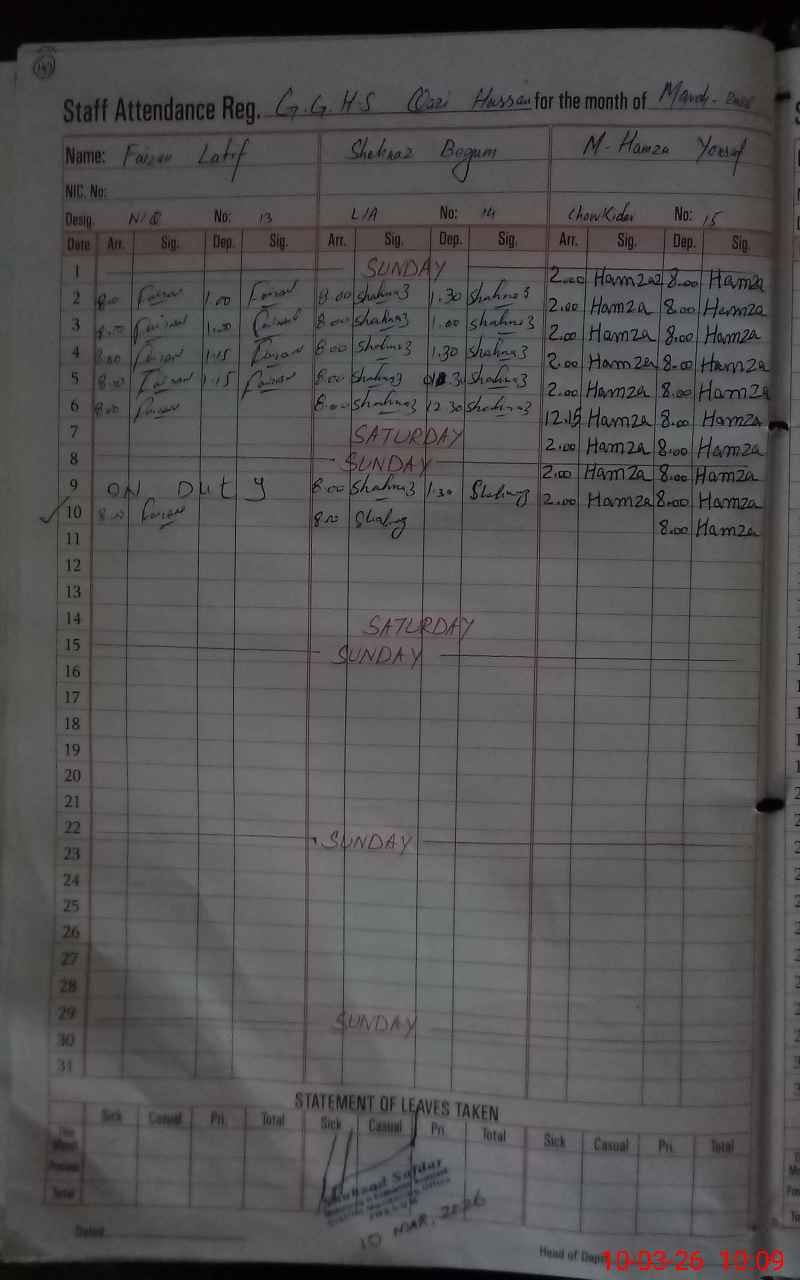 Staff Attendance Reg. G.G.H.S Qazi Hussan for the month of March-2026
Name: Faizan Latif Shahnaz Begum M-Hamza Yousaf
NIC. No:
Desig. N/Q No: 13 L/A No: 14 Chowkidar No: 15
Date Arr. Sig. Dep. Sig. Arr. Sig. Dep. Sig. Arr. Sig. Dep. Sig.
1 SUNDAY 2.00 Hamza 8.00 Hamza
2 8.00 Faizan 1.00 Faizan 8.00 Shahnaz 1.30 Shahnaz 2.00 Hamza 8.00 Hamza
3 8.00 Faizan 1.00 Faizan 8.00 Shahnaz 1.00 Shahnaz 2.00 Hamza 8.00 Hamza
4 8.00 Faizan 1.15 Faizan 8.00 Shahnaz 1.30 Shahnaz 2.00 Hamza 8.00 Hamza
5 8.00 Faizan 1.15 Faizan 8.00 Shahnaz 1.30 Shahnaz 2.00 Hamza 8.00 Hamza
6 8.00 Faizan 8.00 Shahnaz 12.30 Shahnaz 12.15 Hamza 8.00 Hamza
7 SATURDAY 2.00 Hamza 8.00 Hamza
8 SUNDAY 2.00 Hamza 8.00 Hamza
9 ON DUTY 8.00 Shahnaz 1.30 Shahnaz 2.00 Hamza 8.00 Hamza
10 8.00 Faizan 8.00 Shahnaz 8.00 Hamza
11
12
13
14 SATURDAY
15 SUNDAY
16
17
18
19
20
21
22 SUNDAY
23
24
25
26
27
28
29 SUNDAY
30
31
STATEMENT OF LEAVES TAKEN
Sick Casual Pri. Total Sick Casual Pri. Total Sick Casual Pri. Total
This Month
Previous
Total
Safdar
10 MAR, 2026
Dated
Head of Dept
10-03-26 10:09